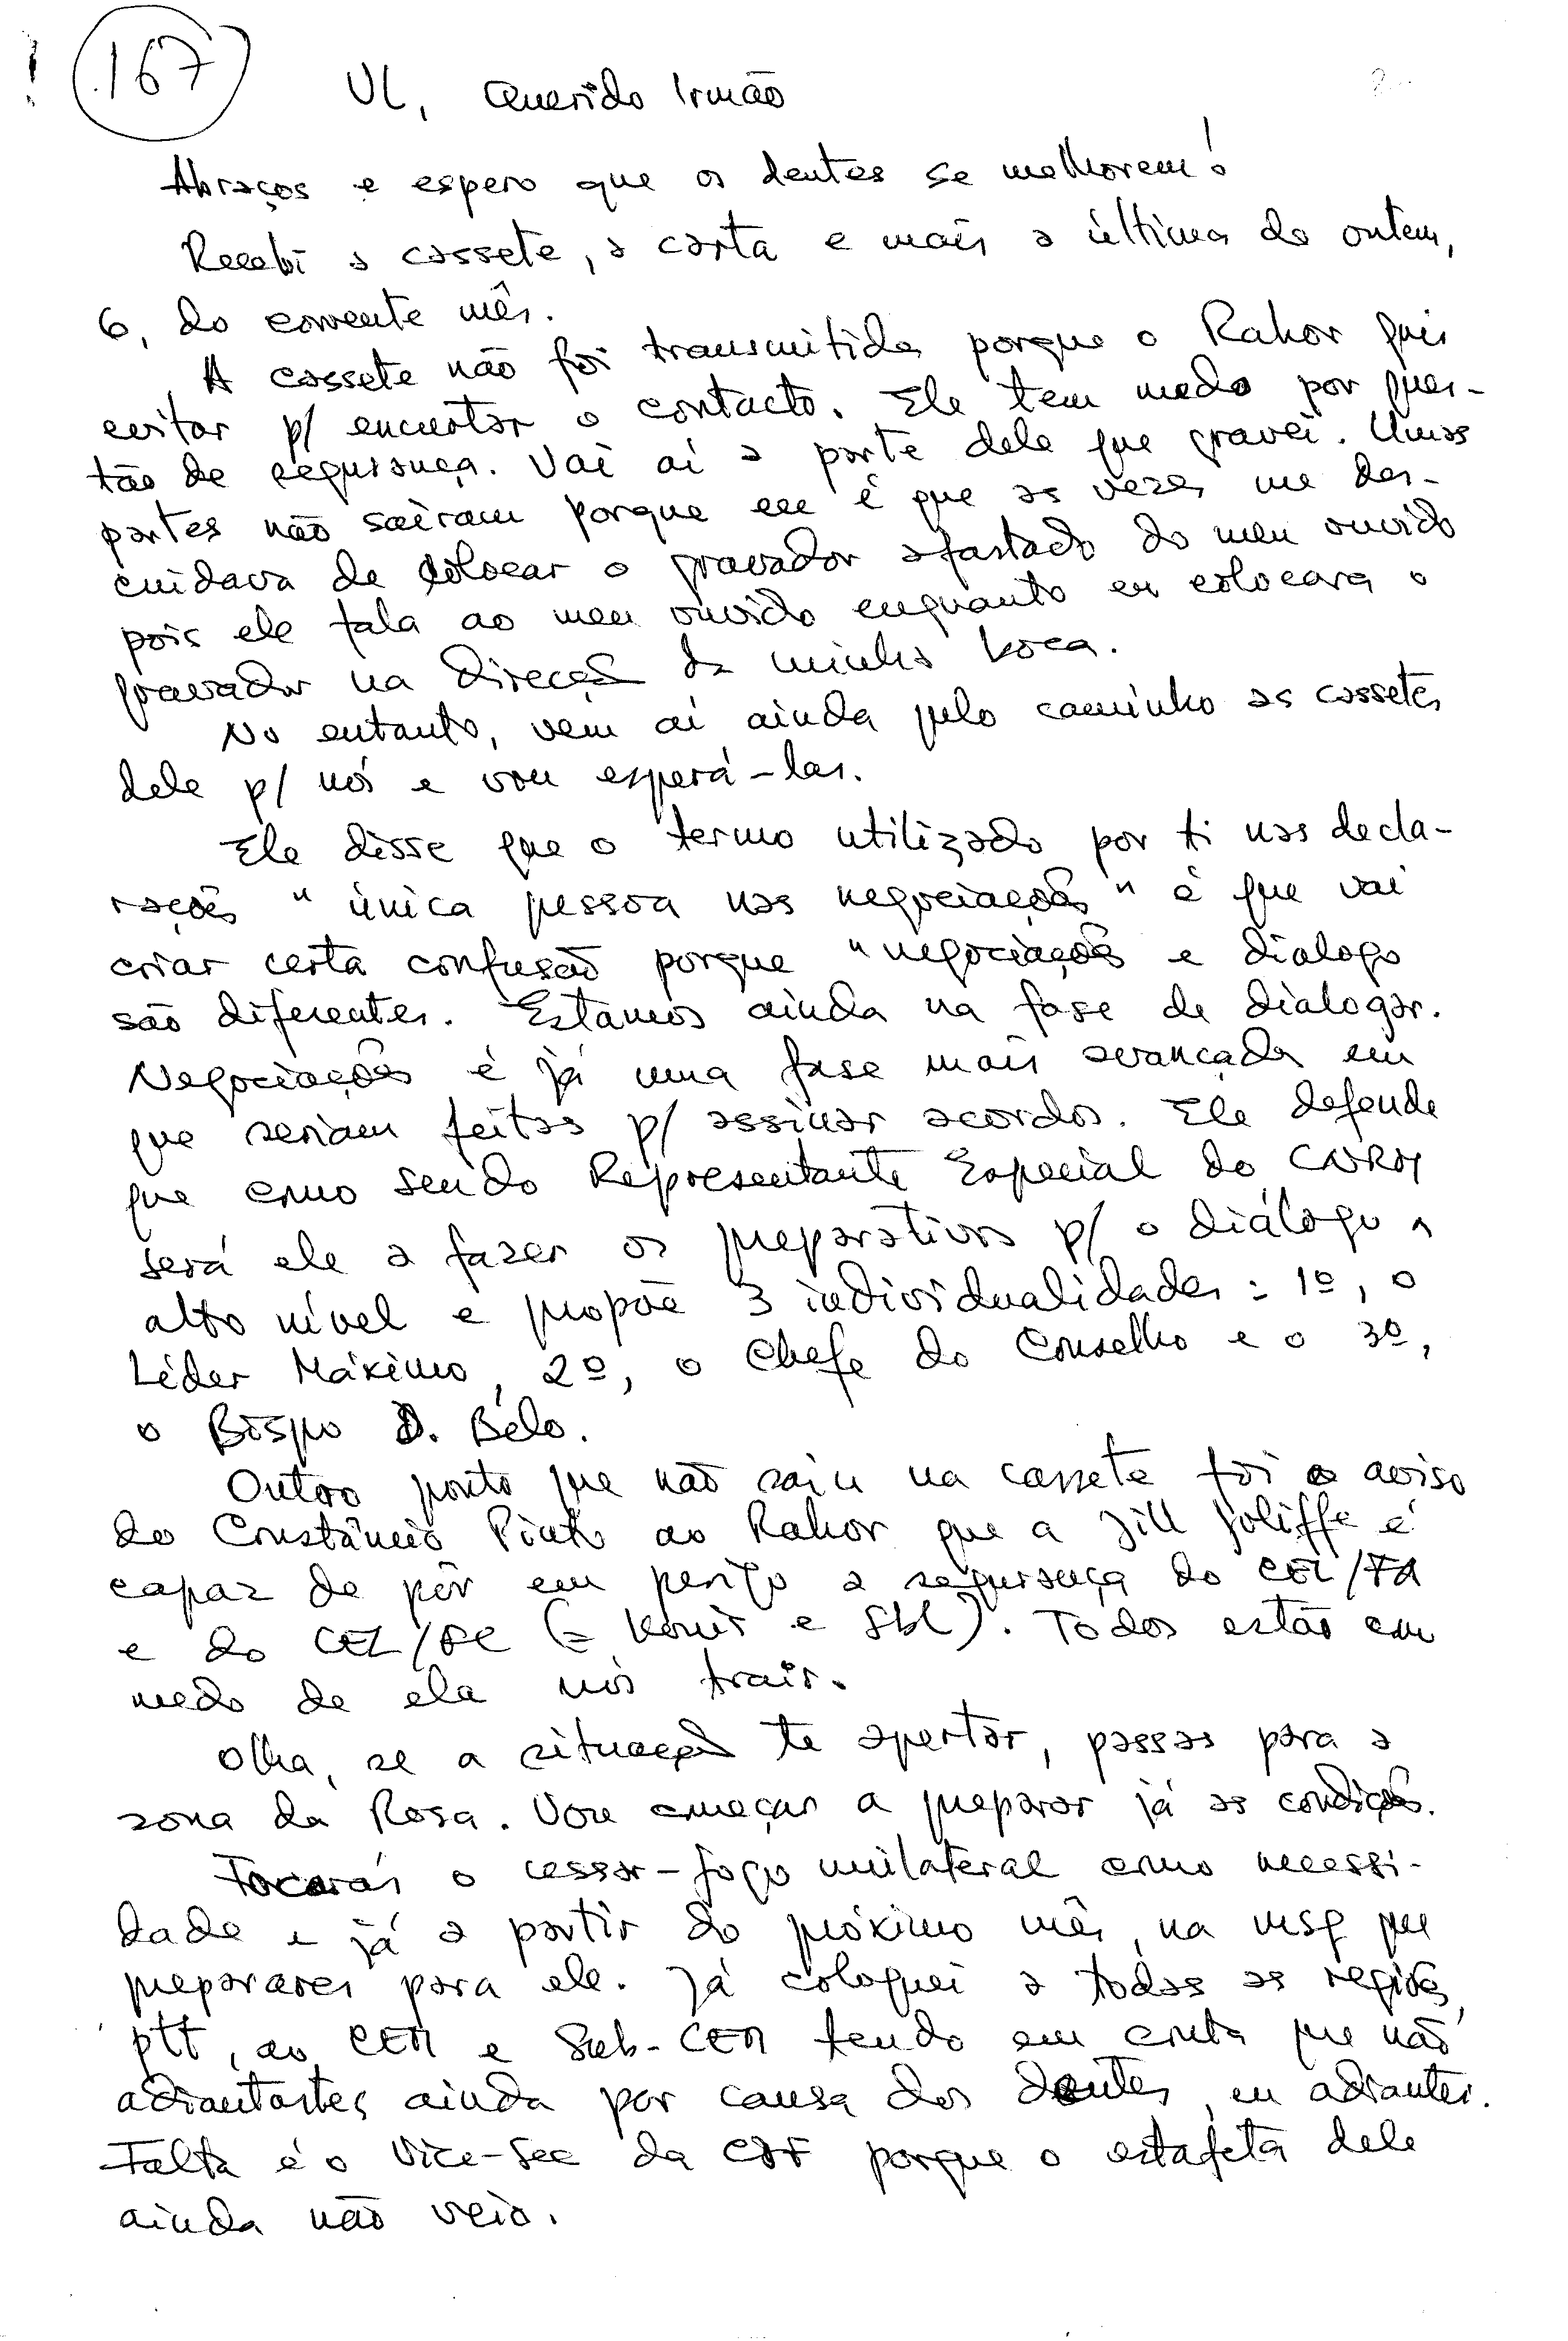 167
UL, Querido Irmão
Abraços e espero que os dentes se melhorem!
Recebi a cassete, a carta e mais a última de ontem,
6, do corrente mês.
A cassete não foi transmitida porque o Rahor quis
evitar p/ encurtar o contacto. Ele tem medo por ques-
tão de segurança. Vai aí a parte dele que gravei. Umas
partes não saíram porque eu é que as vezes me des-
cuidava de colocar o gravador afastado do meu ouvido
pois ele fala ao meu ouvido enquanto eu colocara o
gravador na direcção da minha boca.
No entanto, vem aí ainda pelo caminho as cassetes
dele p/ nós e vou esperá-las.
Ele disse que o termo utilizado por ti nas decla-
rações "única pessoa nas negociações" é que vai
criar certa confusão porque "negociações e dialogo
são diferentes. Estamos ainda na fase de dialogar.
Negociações é já uma fase mais avançada em
que seriam feitas p/ assinar acordos. Ele defende
que como sendo Representante Especial do CNRM
será ele a fazer os preparativos p/ o diálogo a
alto nível e propõe 3 individualidades: 1º, o
Líder Máximo, 2º, o Chefe do Conselho e o 3º,
o Bispo D. Belo.
Outro ponto que não saiu na cassete foi o aviso
do Constâncio Pinto ao Rahor que a Jill Joliffe é
capaz de pôr em perigo a segurança do CEL/FA
e do CEL/FC (= Konis e SBL). Todos estão com
medo de ela nos trair.
Olha, se a situação te apertar, passas para a
zona da Rosa. Vou começar a preparar já as condições.
Focarás o cessar-fogo unilateral como necessi-
dade e já a partir do próximo mês, na msg que
prepararei para ele. Já coloquei a todas as regiões,
ptt, ao CEM e Sub-CEM tendo em conta que não
adiantastes ainda por causa dos dentes, eu adiantei.
Falta é o Vice-Sec da CDF porque o estafeta dele
ainda não veio.